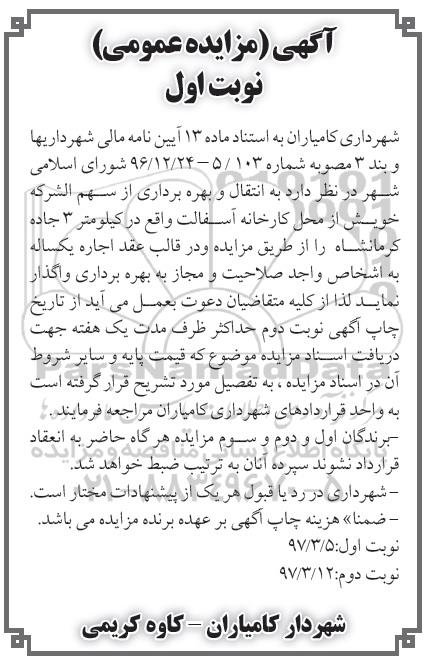 آگهی (مزایده عمومی)
نوبت اول
شهرداری کامیاران به استناد ماده ۱۳ آیین نامه مالی شهرداریها
و بند ۳ مصوبه شماره ۱۰۳ / ۵ – ۹۶/۱۲/۲۴ شورای اسلامی
شهر در نظر دارد به انتقال و بهره برداری از سهم الشرکه
خویش از محل کارخانه آسفالت واقع در کیلومتر ۳ جاده
کرمانشاه را از طریق مزایده ودر قالب عقد اجاره یکساله
به اشخاص واجد صلاحیت و مجاز به بهره برداری واگذار
نماید لذا از کلیه متقاضیان دعوت بعمل می آید از تاریخ
چاپ آگهی نوبت دوم حداکثر ظرف مدت یک هفته جهت
دریافت اسناد مزایده موضوع که قیمت پایه و سایر شروط
آن در اسناد مزایده ، به تفصیل مورد تشریح قرار گرفته است
به واحد قراردادهای شهرداری کامیاران مراجعه فرمایند .
–برندگان اول و دوم و سوم مزایده هر گاه حاضر به انعقاد
قرارداد نشوند سپرده آنان به ترتیب ضبط خواهد شد.
– شهرداری در رد یا قبول هر یک از پیشنهادات مختار است.
– ضمنا» هزینه چاپ آگهی بر عهده برنده مزایده می باشد.
نوبت اول:۹۷/۳/۵
نوبت دوم:۹۷/۳/۱۲
شهردار کامیاران – کاوه کریمی
ParsNamadData